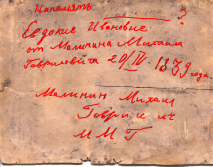 На память
Евдокие Ивановне
от Малинина Михаила
Гавриловича 20/IV 1939 года
Малинин Михаил
ММГ